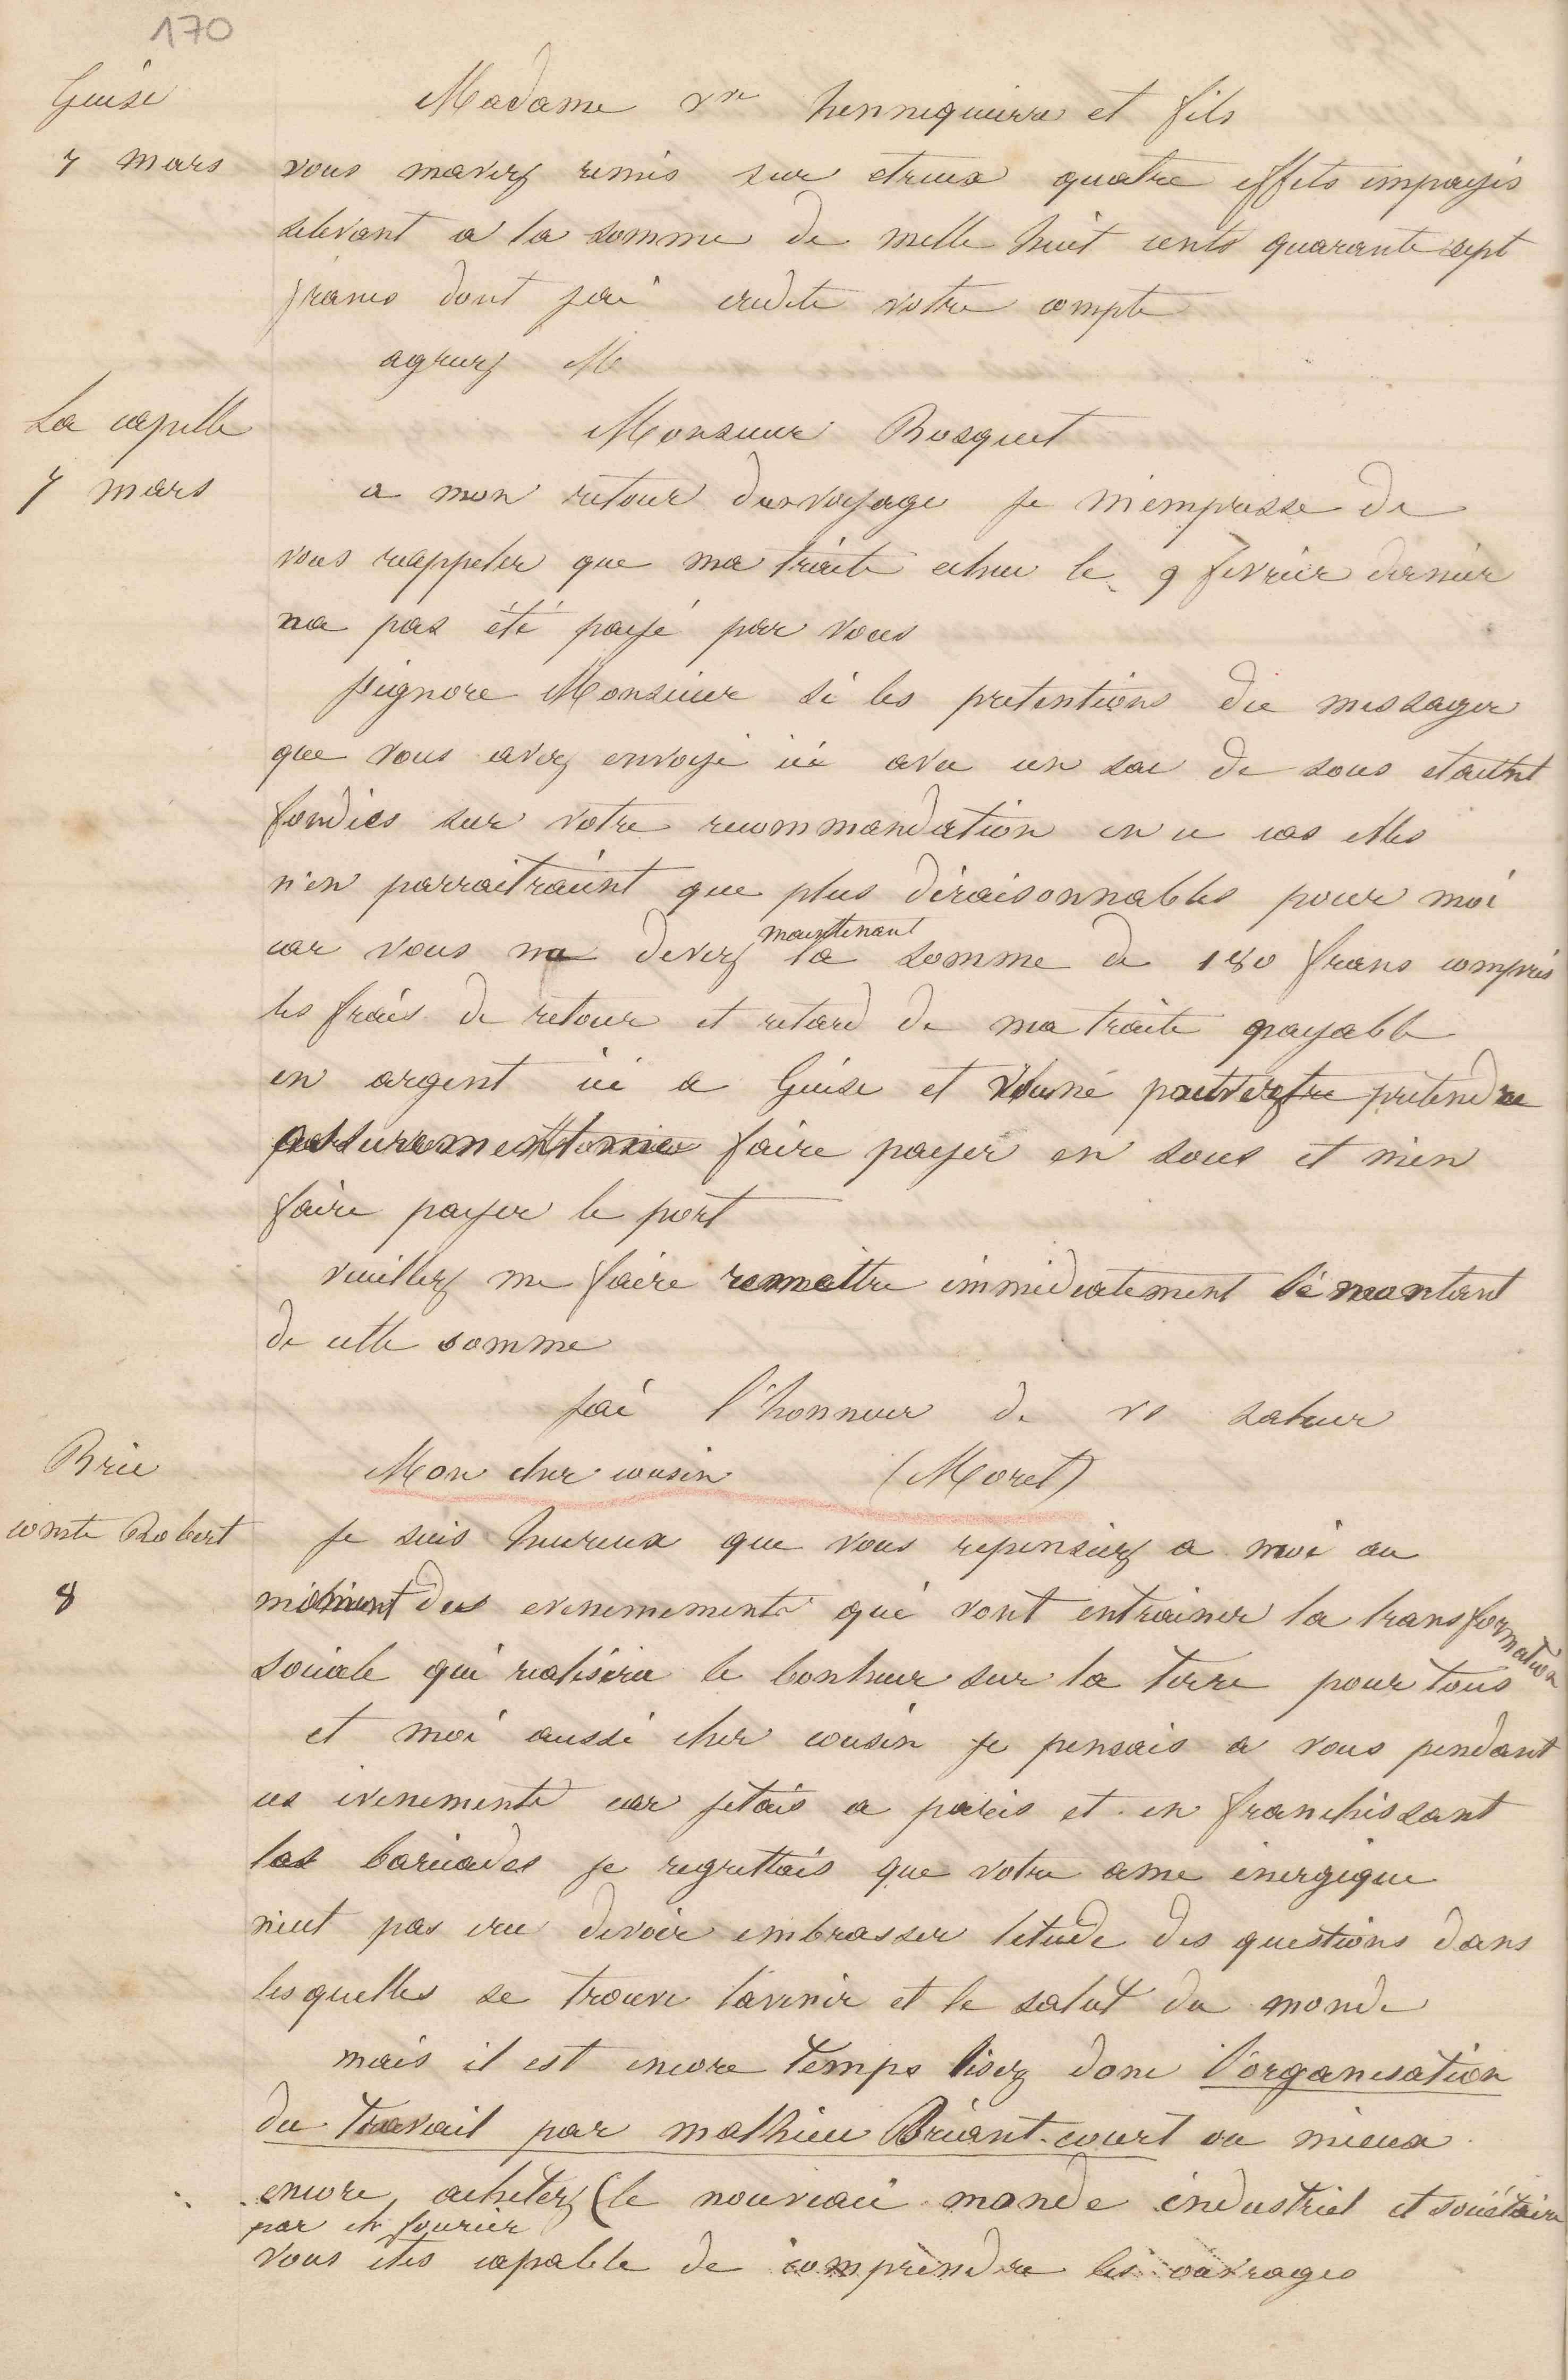 170
Guise
7 mars
Madame Vve hennequierre et fils
vous mavez remis sur etreux quatre effets impayés
selevant a la somme de mille huit cents quarante sept
francs dont jai credité votre compte
agreez M
La capelle
7 mars
Monsieur Bosquet
a mon retour de voyage je m'empresse de
vous reappeler que ma traite echue le 9 fevrier dernier
na pas été payé par vous
jignore Monsieur si les pretentions du messager
que vous avez envoyé ici avec un sac de sous etaient
fondées sur votre recommandation en ce cas elles
n'en parraitraient que plus déraisonnables pour moi
car vous me devez maintenant la somme de 180 frans compris
les frais de retour et retard de ma traite payable
en argent ici a Guise et vous ne pouvez pretendre
assurement me faire payer en sous et m'en
faire payer le port
veuillez me faire remettre immediatement le montant
de cette somme
jai l'honneur de vs saluer
Brie
comte Robert
8
Mon cher cousin (Moret)
je suis heureux que vous repensiez a moi au
moment des evenemements qui vont entrainer la transformation
sociale qui realisera le bonheur sur la terre pour tous
et moi aussi cher cousin je pensais a vous pendant
ces evenements car jetais a paris et en franchissant
les baricades je regrettais que votre ame energique
n'eut pas cru devoir embrasser letude des questions dans
lesquelles se trouve l'avenir et le salut du monde
mais il est encore temps lisez donc l'organisation
du travail par mathieu Briant-court ou mieux
encore achetez (le nouveau monde industriel et sociétaire
par ch fourier
vous etes capable de comprendre les ouvrages